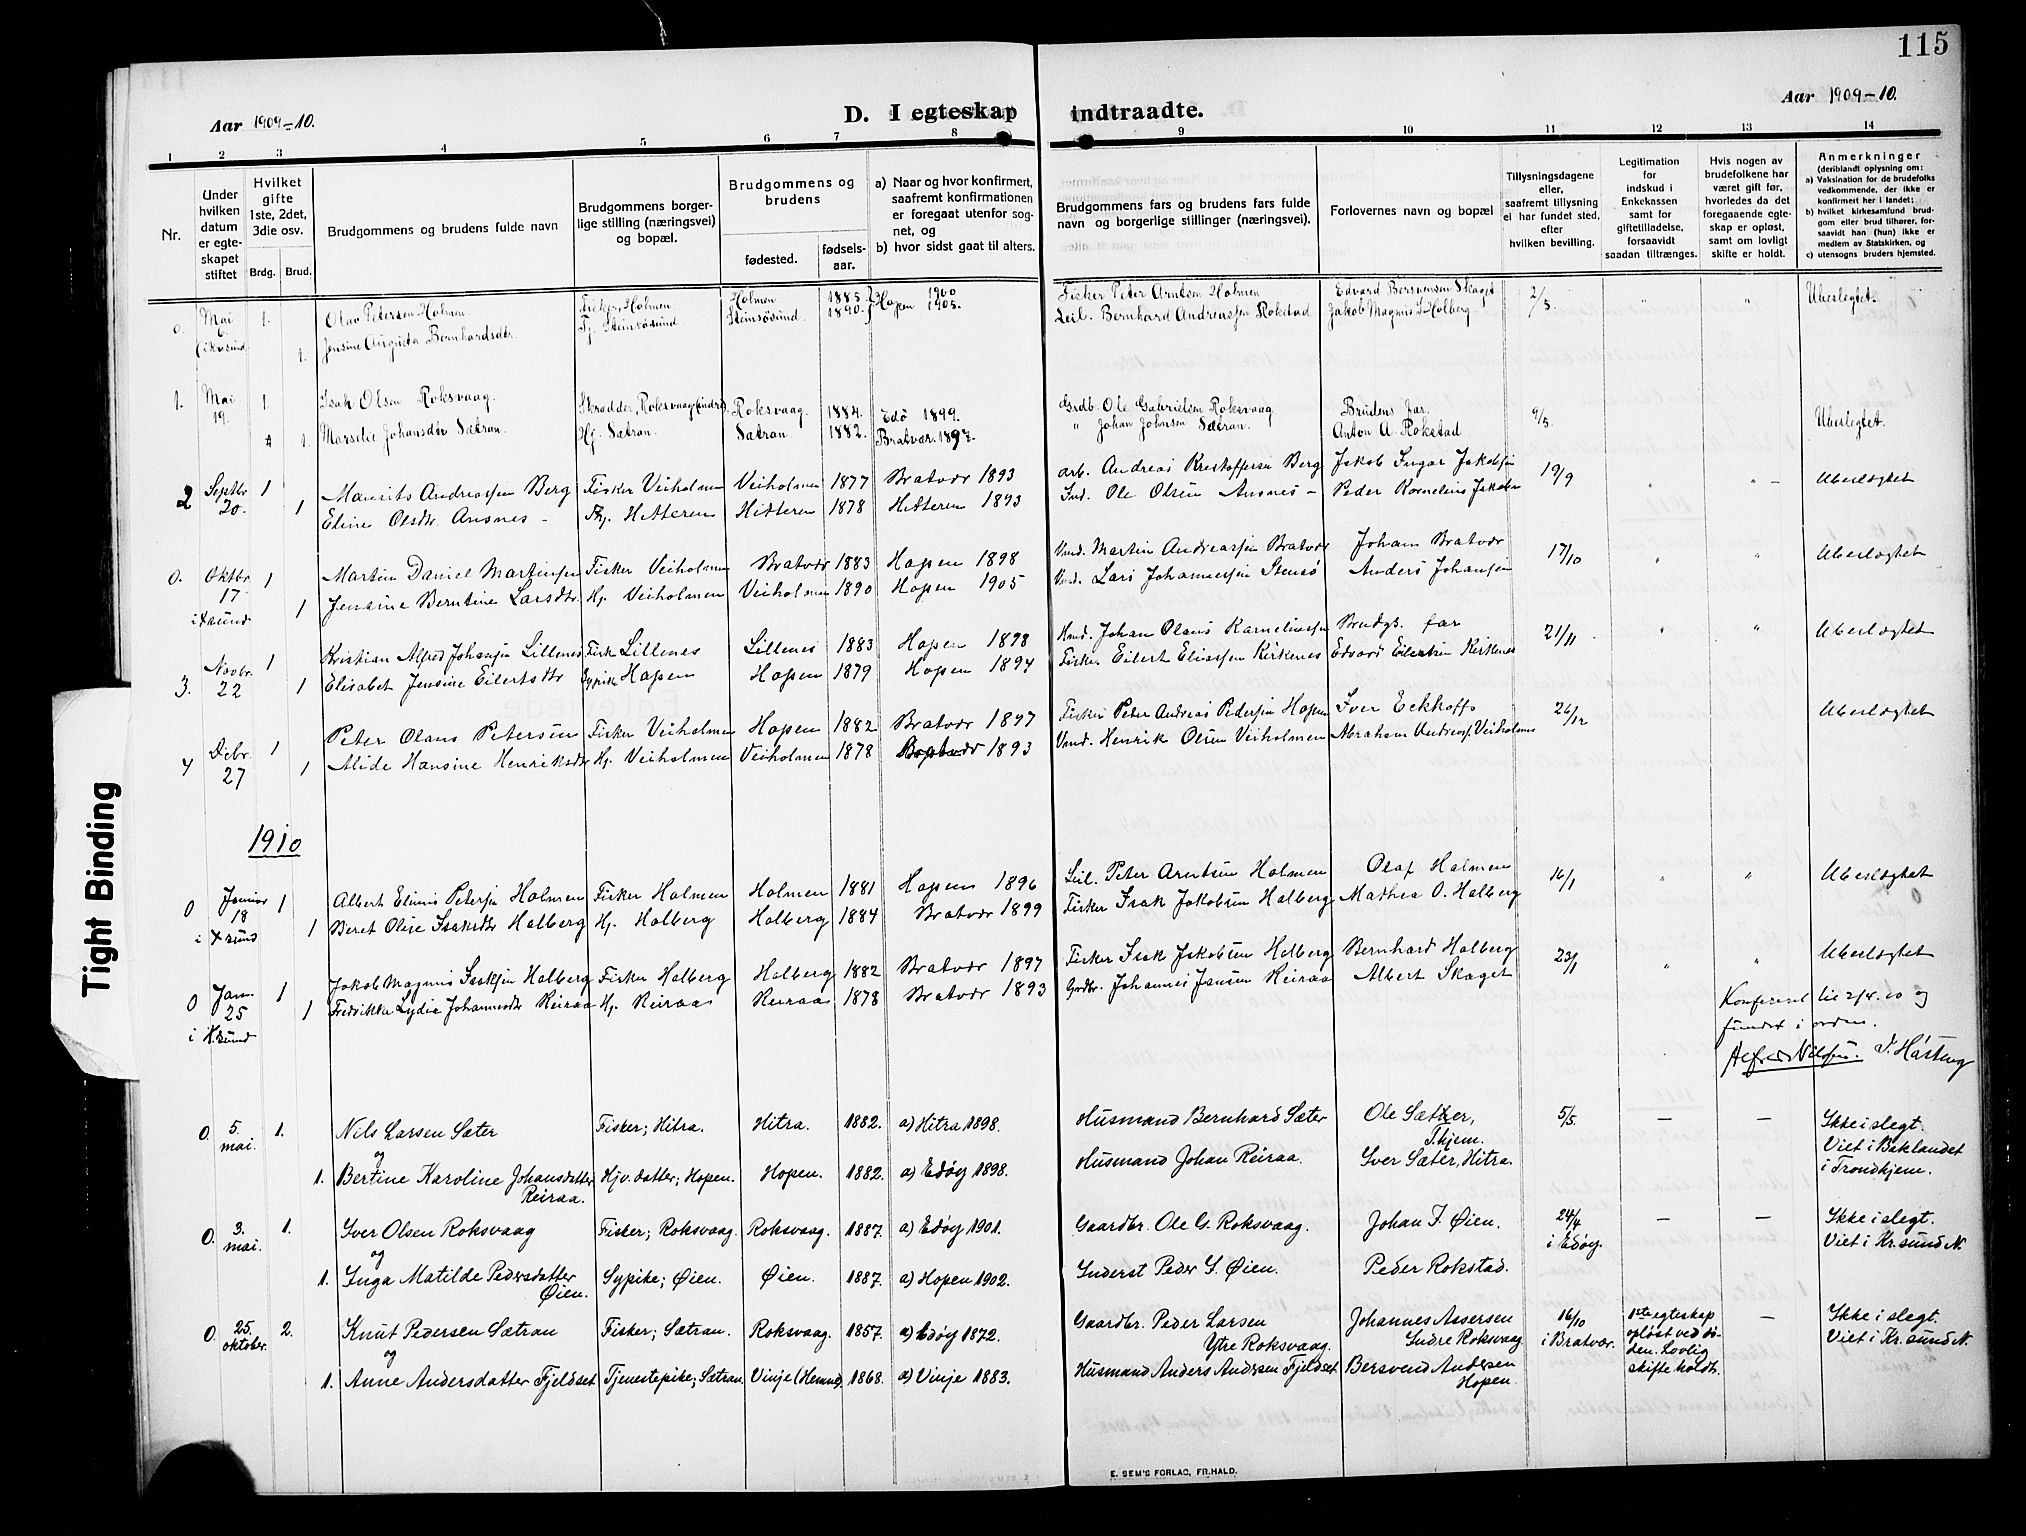 115
Aar 1909-10.
D. I egteskap indtraadte.
Aar 1909-10.
1 2 3 4 5 6 7 8 9 10 11 12 13 14
Nr.
Under hvilken datum er egteskapet stiftet
Hvilket gifte 1ste, 2det, 3die osv.
Brdg. Brud.
Brudgommens og brudens fulde navn
Brudgommens borgerlige stilling (næringsvei) og bopæl.
Brudgommens og brudens
fødested.
fødselsaar.
a) Naar og hvor konfirmert, saafremt konfirmationen er foregaat utenfor sognet, og
b) hvor sidst gaat til alters.
Brudgommens fars og brudens fars fulde navn og borgerlige stillinger (næringsvei).
Forlovernes navn og bopæl
Tillysningsdagene eller, saafremt tillysning ei har fundet sted, efter hvilken bevilling.
Legitimation for indskud i Enkekassen samt for giftetilladelse, forsaavidt saadan tiltrænges.
Hvis nogen av brudefolkene har været gift før, hvorledes da det foregaaende egteskap er opløst, samt om lovligt skifte er holdt.
Anmerkninger
(deriblandt oplysning om:
a) Vaksination for de brudefolks vedkommende, der ikke er konfirmert her i landet;
b) hvilket kirkesamfund brudgom eller brud tilhører, forsaavidt han (hun) ikke er medlem av Statskirken, og
c) utensogns bruders hjemsted.
0. Mai 6. i Kr.sund 1. Olav Petersen Holmen Fisker, Holmen Holmen 1885. Hopen 1900 Fisker Peter Arntsen Holmen 2/5. " " Ubeslegtet.
1. Jensine Augusta Bernhardsdtr. Steinsøsund Steinsøsund. 1890. 1905. Leil. Bernhard Andreassen Rokstad Jakob Magnus I Holberg.
1. Mai 19. 1. Isak Olsen Roksvaag. Skrædder, Roksvaag (indre). Roksvaag. 1884. Edø 1899. Grdb. Ole Gabrielsen Roksvaag Brudens far. 9/5. Ubeslegtet.
1. Marselie Johansdtr Sætran. Hj. Sætran. Sætran. 1882. Bratvær. 1897. " Johan Johnsen Sætran. Anton A. Rokstad
2 Septbr 20. 1 Maurits Andreassen Berg Fisker Veiholmen Veiholmen 1877 Bratvær 1893 arb. Andreas Kristoffersen Berg Jakob Ingar Jakobsen 19/9 " " - Ubeslægtet
1 Eline Olsdtr. Ansnes - Hitteren Hitteren 1878 Hitteren 1893 Ind. Ole Olsen Ansnes - Peder Kornelius Jakobsen
0. Oktbr 17 i Krsund 1 Martin Daniel Martinsen Fisker Veiholmen Bratvær 1883 Hopen 1898 Martin Andreassen Bratvær Johan Bratvær 17/10 " " Ubeslægtet
1 Jensine Berntine Larsdtr. Hj. Veiholmen Veiholmen 1890 Hopen 1905 Lars Johannessen Stensø Anders Johansen
3. Novbr. 22 1 Kristian Alfred Johansen Lillenes Fisk Lillenes Lillenes 1883 Hopen 1898 Hmd. Johan Olaus Korneliussen Brudgs. far 21/11 " " Ubeslægtet
1 Elisabet Jensine Eilertsdtr Sypike Hopen Hopen 1879 Hopen 1894 Fisker Eilert Eliassen Kirkenes Edvard Eilertsen Kirkenes
4 Debr. 27 1 Peter Olaus Petersen Fisker Veiholmen Hopen 1882 Bratvær 1897 Fisker Peter Andreas Pedersen Hopen Iver Eckhoff 26/12 Ubeslægtet
1 Alide Hansine Henriksdtr Hj. Veiholmen Veiholmen 1878 Bratvær 1893 Henrik Olsen Veiholmen Abraham Andreas. Veiholmen
1910
0 Januar 18 i Krsund 1 Albert Elinus Petersen Holmen Fisker Holmen Holmen 1881 Hopen 1896 Leil. Peter Arntsen Holmen Olaf Holmen 16/1 " " Ubeslægtet
1 Beret Olise Isaksdtr Holberg Hj. Holberg Holberg 1884 Bratvær 1899 Fisker Isak Jakobsen Holberg Mathea O. Holberg
0 Jan. 25 i Kr.sund 1 Jakob Magnus Isaksen Holberg Fisker Holberg Holberg 1882 Bratvær 1897 Fisker Isak Jakobsen Holberg Bernhard Holberg 23/1 " " Ubeslægtet
1 Fredrikke Lydia Johannesdtr Reiraa Hj. Reiraa Reiraa 1878 Bratvær 1893 Grdbr. Johannes Jansen Reiraa Albert Skaget
Konfereret til 2/4.10 og
fundet i orden.
Alfred Nilsen.
0. 5. mai. 1. Nils Larsen Sæter Fisker; Hitra. Hitra. 1882. a) Hitra 1898. Husmand Bernhard Sæter Ole Sæther, T.hjem. 5/5. — — Ikke i slegt.
og Viet i Baklandet
1. Bertine Karoline Johansdatter Reiraa. Hjv. datter; Hopen. Hopen. 1882. a) Edøy 1898. Husmand Johan Reiraa. Iver Sæter, Hitra. i Trondhjem.
0. 3. mai. 1. Iver Olsen Roksvaag Fisker; Roksvaag. Roksvaag. 1887. a) Edøy 1901. Gaardbr. Ole G. Roksvaag. Johan J. Øien. 24/4 i Edøy. — — Ikke i slegt.
og Viet i Kr.sund N.
1. Inga Matilde Pedersdatter Øien. Sypike; Øien. Øien. 1887. a) Hopen 1902. Inderst Peder G. Øien. Peder Rokstad.
0. 25. oktober. 2. Knut Pedersen Sætran Fisker; Sætran. Roksvaag. 1857. a) Edøy 1872. Gaardbr. Peder Larsen Ytre Roksvaag. Johannes Assersen Indre Roksvaag 16/10 i Bratvær. 1ste egteskap opløst ved døden. Lovlig skifte holdt. — Ikke i slegt.
og Viet i Kr.sund N.
1. Anne Andersdatter Fjeldset. Tjenestepike; Sætran. Vinje (Hemne). 1868. a) Vinje 1883. Husmand Anders Andersen Fjeldset. Bersvend Andersen Hopen.
E. SEM'S FORLAG, FR.HALD.
Tight Binding